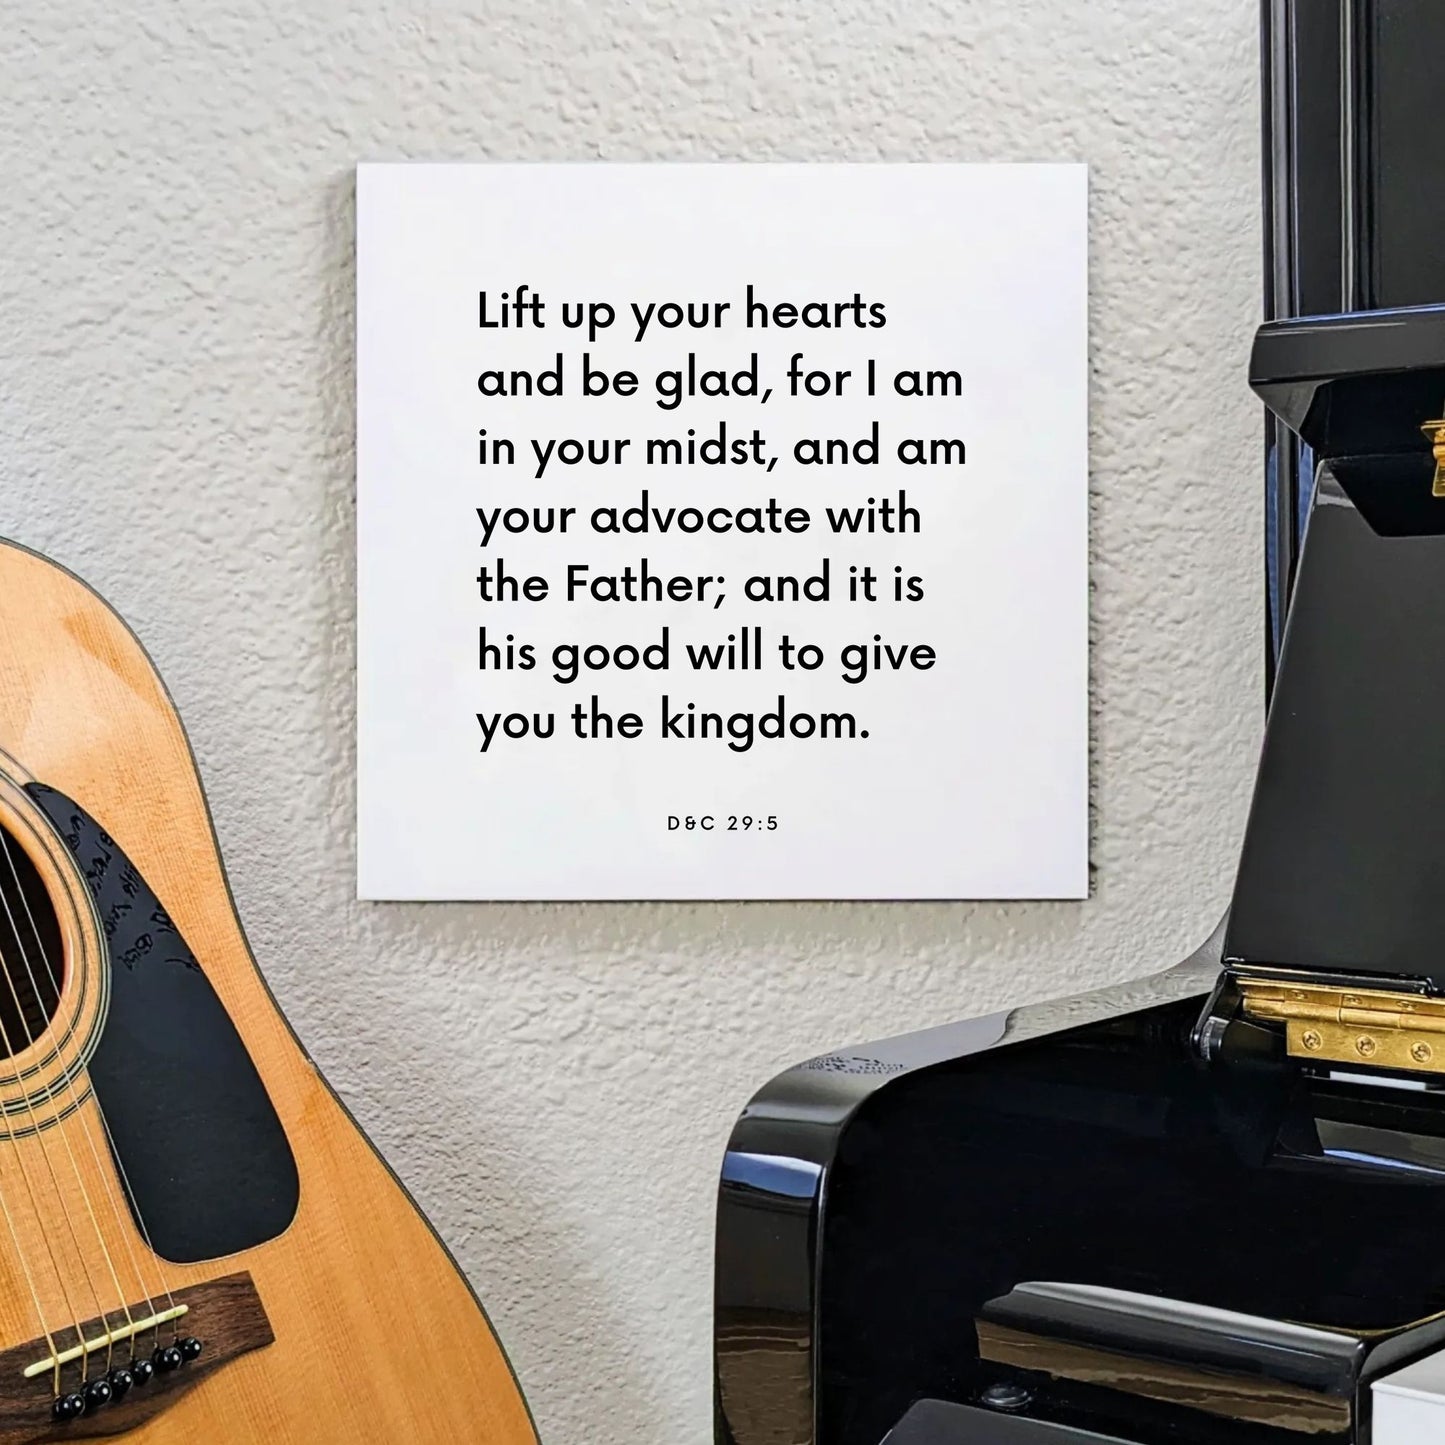 Lift up your hearts
and be glad, for I am
in your midst, and am
your advocate with
the Father; and it is
his good will to give
you the kingdom.
D&C 29:5